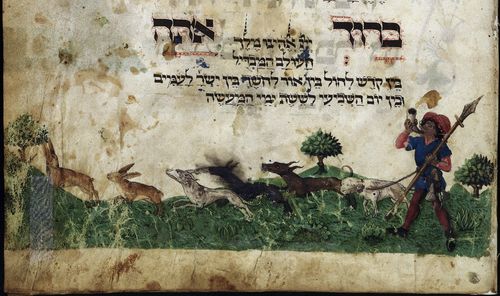 ברוך אתה
יי אלהינו מלך
העולם המבדיל
בין קדש לחול בין אור לחשך בין ישר' לעמים
ובין יום השביעי לששת ימי המעשה